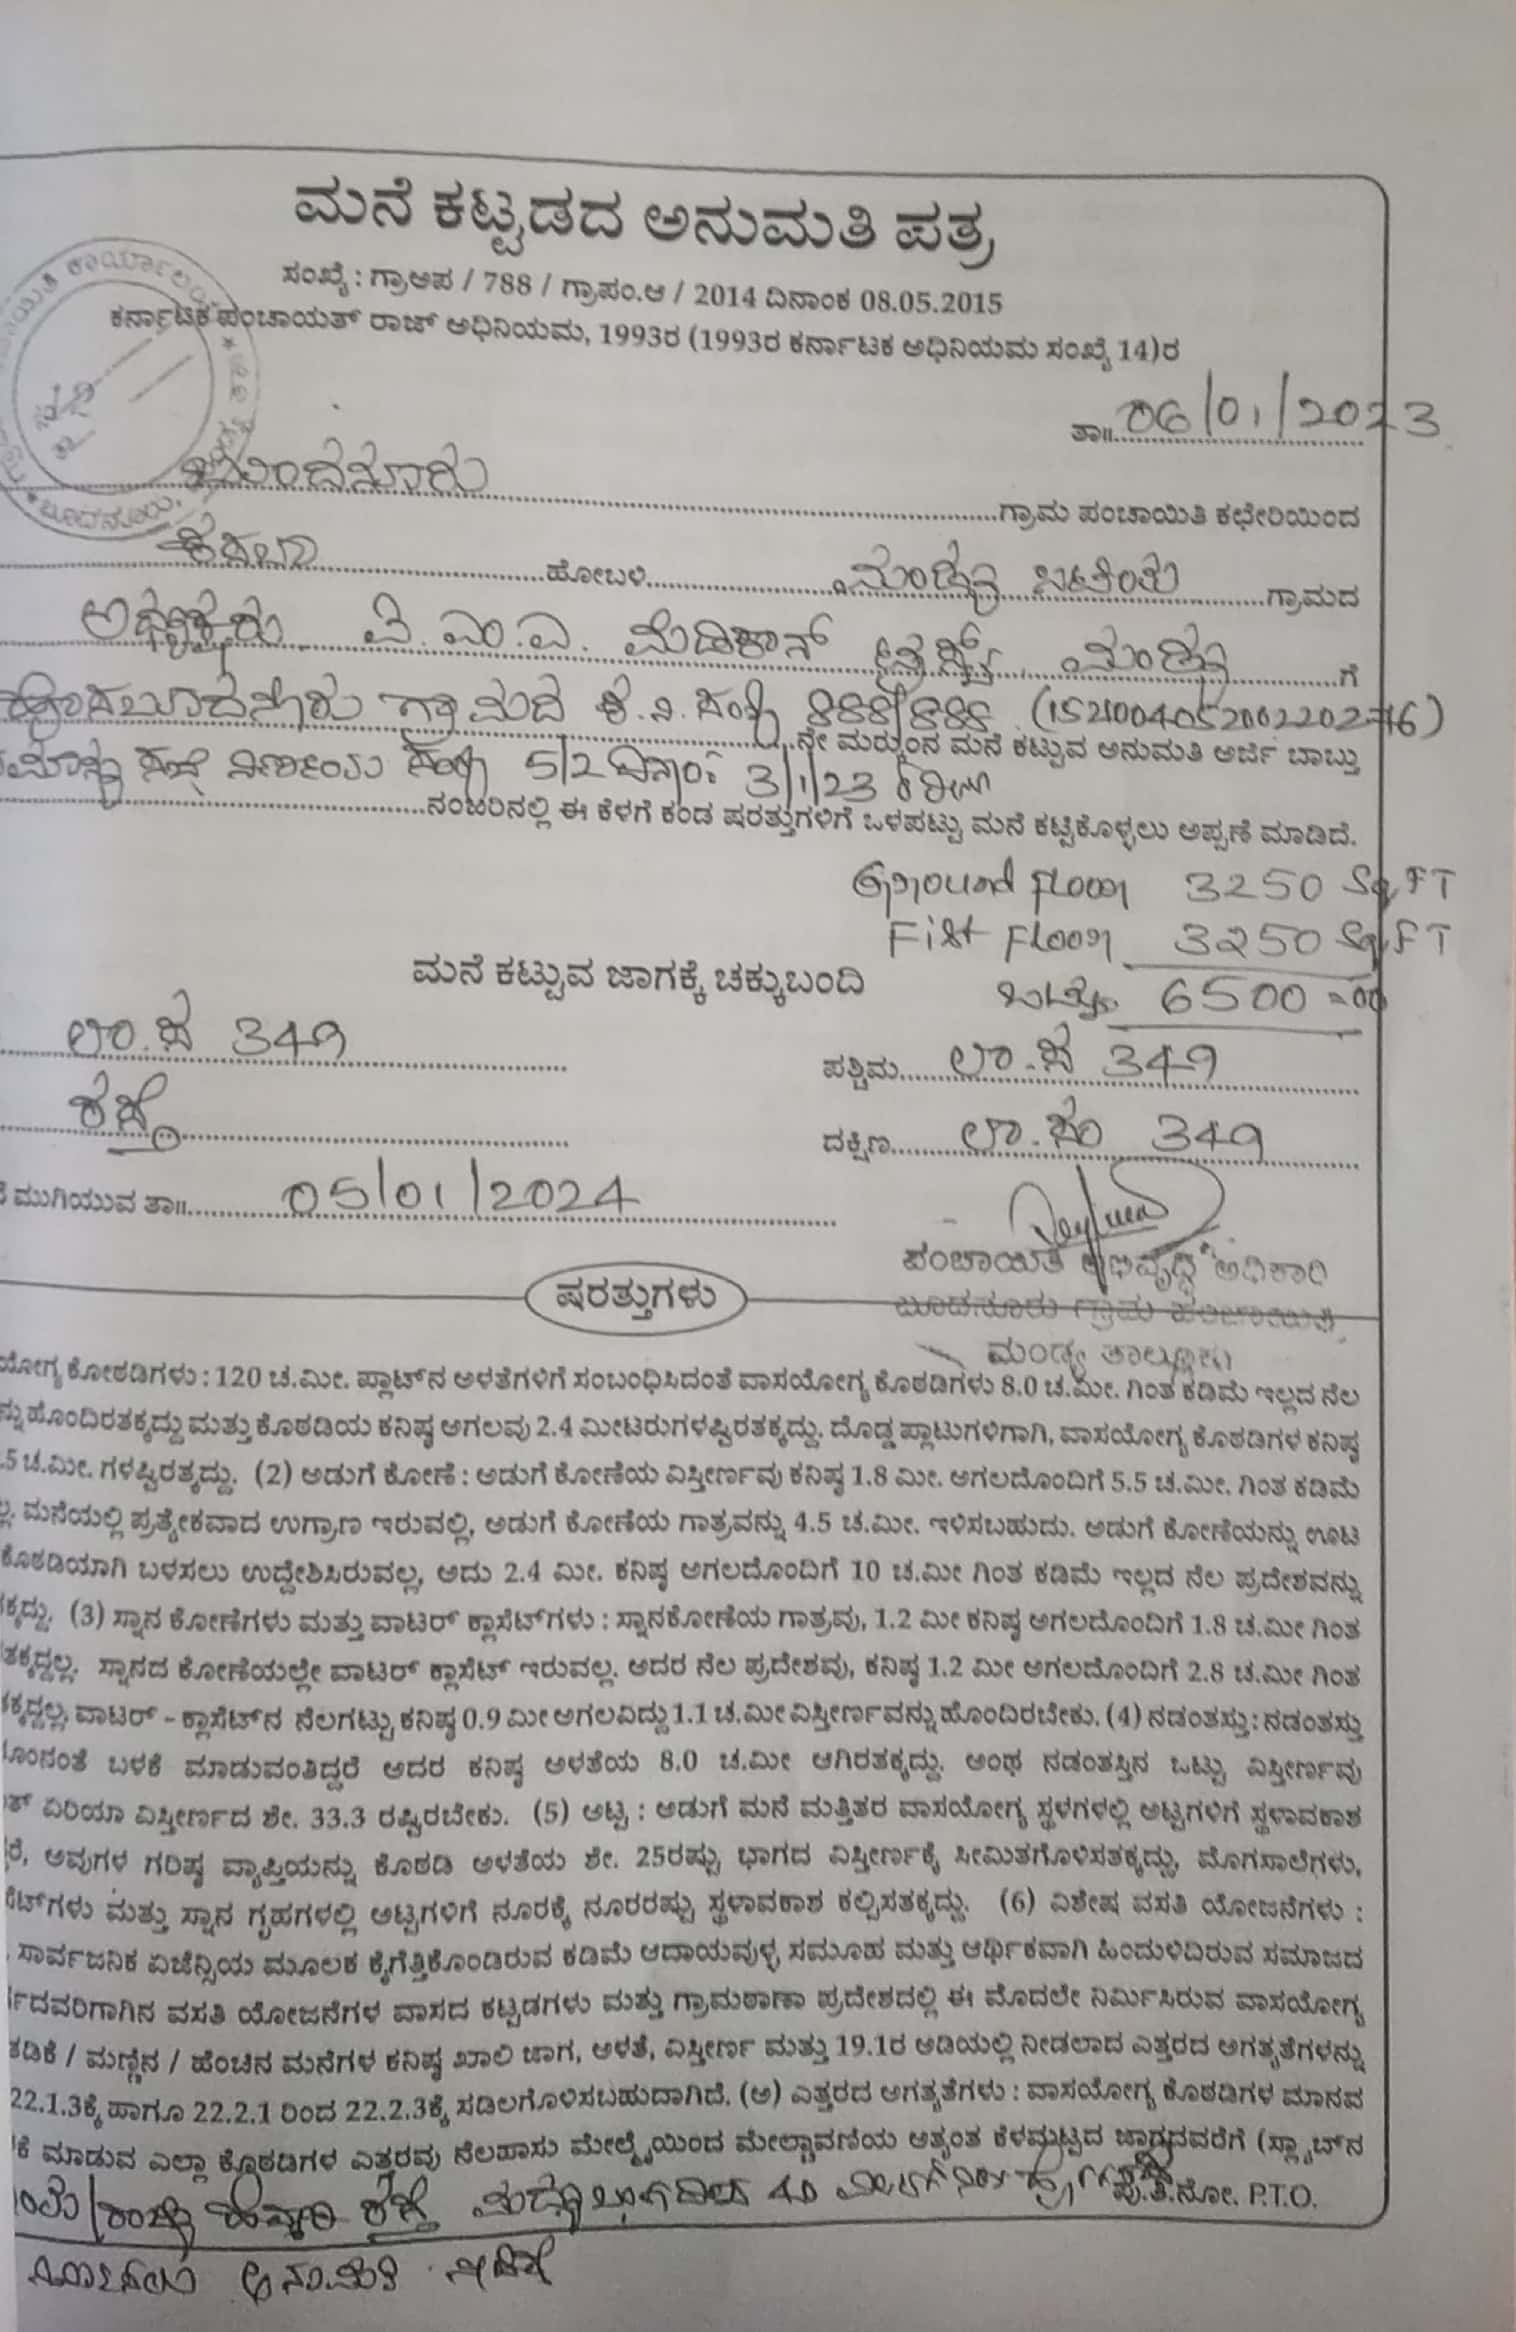 ಮನೆ ಕಟ್ಟಡದ ಅನುಮತಿ ಪತ್ರ
ಸಂಖ್ಯೆ : ಗ್ರಾಅಪ / 788 / ಗ್ರಾಪಂ.ಆ / 2014 ದಿನಾಂಕ 08.05.2015
ಕರ್ನಾಟಕ ಪಂಚಾಯತ್ ರಾಜ್ ಅಧಿನಿಯಮ, 1993ರ (1993ರ ಕರ್ನಾಟಕ ಅಧಿನಿಯಮ ಸಂಖ್ಯೆ 14)ರ
ತಾ॥ 06/01/2023
ಗ್ರಾಮ ಪಂಚಾಯಿತಿ ಕಛೇರಿಯಿಂದ
ಹೋಬಳಿ ಮಂಡ್ಯ ಗ್ರಾಮದ
ಅಧ್ಯಕ್ಷರು ವಿ.ಎಂ.ಎ. ಟ್ರಸ್ಟ್ ಮಂಡ್ಯ ಗೆ
ಗ್ರಾಮದ ಸಂಖ್ಯೆ 888/888 (152100405200220276)
ನೇ ಮಠ್ಕಂನ ಮನೆ ಕಟ್ಟುವ ಅನುಮತಿ ಅರ್ಜಿ ಬಾಬ್ತು
ಸಾಮಾನ್ಯ ಸಭೆ ನಿರ್ಣಯ ಸಂಖ್ಯೆ 5/2 ದಿನಾಂ: 3/1/23
ನಂಜರಿನಲ್ಲಿ ಈ ಕೆಳಗೆ ಕಂಡ ಷರತ್ತುಗಳಿಗೆ ಒಳಪಟ್ಟು ಮನೆ ಕಟ್ಟಿಕೊಳ್ಳಲು ಅಪ್ಪಣೆ ಮಾಡಿದೆ.
Ground Floor 3250 Sq FT
Fist Floor 3250 Sq FT
ಒಟ್ಟು 6500=00
ಮನೆ ಕಟ್ಟುವ ಜಾಗಕ್ಕೆ ಚಕ್ಕುಬಂದಿ
ಲಾ.ಸ 349
ಪಶ್ಚಿಮ ಲಾ.ಸ 349
ರಸ್ತೆ
ದಕ್ಷಿಣ ಲಾ.ಸಂ 349
ಮುಗಿಯುವ ತಾ॥ 05/01/2024
ಪಂಚಾಯಿತಿ ಅಭಿವೃದ್ಧಿ ಅಧಿಕಾರಿ
ಬೂದನೂರು ಗ್ರಾಮ ಪಂಚಾಯಿತಿ
ಮಂಡ್ಯ ತಾಲ್ಲೂಕು
ಷರತ್ತುಗಳು
ಯೋಗ್ಯ ಕೋಠಡಿಗಳು : 120 ಚ.ಮೀ. ಪ್ಲಾಟ್‌ನ ಅಳತೆಗಳಿಗೆ ಸಂಬಂಧಿಸಿದಂತೆ ವಾಸಯೋಗ್ಯ ಕೊಠಡಿಗಳು 8.0 ಚ.ಮೀ. ಗಿಂತ ಕಡಿಮೆ ಇಲ್ಲದ ನೆಲ
ನ್ನು ಹೊಂದಿರತಕ್ಕದ್ದು ಮತ್ತು ಕೊಠಡಿಯ ಕನಿಷ್ಠ ಅಗಲವು 2.4 ಮೀಟರುಗಳಷ್ಟಿರತಕ್ಕದ್ದು. ದೊಡ್ಡ ಪ್ಲಾಟುಗಳಿಗಾಗಿ, ವಾಸಯೋಗ್ಯ ಕೊಠಡಿಗಳ ಕನಿಷ್ಠ
.5 ಚ.ಮೀ. ಗಳಷ್ಟಿರತ್ಕದ್ದು. (2) ಅಡುಗೆ ಕೋಣೆ : ಅಡುಗೆ ಕೋಣೆಯ ವಿಸ್ತೀರ್ಣವು ಕನಿಷ್ಠ 1.8 ಮೀ. ಅಗಲದೊಂದಿಗೆ 5.5 ಚ.ಮೀ. ಗಿಂತ ಕಡಿಮೆ
ಮನೆಯಲ್ಲಿ ಪ್ರತ್ಯೇಕವಾದ ಉಗ್ರಾಣ ಇರುವಲ್ಲಿ, ಅಡುಗೆ ಕೋಣೆಯ ಗಾತ್ರವನ್ನು 4.5 ಚ.ಮೀ. ಇಳಿಸಬಹುದು. ಅಡುಗೆ ಕೋಣೆಯನ್ನು ಊಟ
ಕೊಠಡಿಯಾಗಿ ಬಳಸಲು ಉದ್ದೇಶಿಸಿರುವಲ್ಲಿ, ಅದು 2.4 ಮೀ. ಕನಿಷ್ಠ ಅಗಲದೊಂದಿಗೆ 10 ಚ.ಮೀ ಗಿಂತ ಕಡಿಮೆ ಇಲ್ಲದ ನೆಲ ಪ್ರದೇಶವನ್ನು
ಕ್ಕದ್ದು. (3) ಸ್ನಾನ ಕೋಣೆಗಳು ಮತ್ತು ವಾಟರ್ ಕ್ಲಾಸೆಟ್‌ಗಳು : ಸ್ನಾನಕೋಣೆಯ ಗಾತ್ರವು, 1.2 ಮೀ ಕನಿಷ್ಠ ಅಗಲದೊಂದಿಗೆ 1.8 ಚ.ಮೀ ಗಿಂತ
ತಕ್ಕದ್ದಲ್ಲ. ಸ್ನಾನದ ಕೋಣೆಯಲ್ಲೇ ವಾಟರ್ ಕ್ಲಾಸೆಟ್ ಇರುವಲ್ಲ. ಅದರ ನೆಲ ಪ್ರದೇಶವು, ಕನಿಷ್ಠ 1.2 ಮೀ ಅಗಲದೊಂದಿಗೆ 2.8 ಚ.ಮೀ ಗಿಂತ
ಕ್ಕದ್ದಲ್ಲ, ವಾಟರ್ - ಕ್ಲಾಸೆಟ್‌ನ ನೆಲಗಟ್ಟು ಕನಿಷ್ಠ 0.9 ಮೀ ಅಗಲವಿದ್ದು 1.1 ಚ.ಮೀ ವಿಸ್ತೀರ್ಣವನ್ನು ಹೊಂದಿರಬೇಕು. (4) ನಡಂತಸ್ತು : ನಡಂತಸ್ತು
ಬಳಕೆ ಮಾಡುವಂತಿದ್ದರೆ ಅದರ ಕನಿಷ್ಠ ಅಳತೆಯ 8.0 ಚ.ಮೀ ಆಗಿರತಕ್ಕದ್ದು. ಅಂಥ ನಡಂತಸ್ತಿನ ಒಟ್ಟು ವಿಸ್ತೀರ್ಣವು
ಏರಿಯಾ ವಿಸ್ತೀರ್ಣದ ಶೇ. 33.3 ರಷ್ಟಿರಬೇಕು. (5) ಅಟ್ಟ : ಅಡುಗೆ ಮನೆ ಮತ್ತಿತರ ವಾಸಯೋಗ್ಯ ಸ್ಥಳಗಳಲ್ಲಿ ಅಟ್ಟಗಳಿಗೆ ಸ್ಥಳಾವಕಾಶ
ರೆ, ಅವುಗಳ ಗರಿಷ್ಠ ವ್ಯಾಪ್ತಿಯನ್ನು ಕೊಠಡಿ ಅಳತೆಯ ಶೇ. 25ರಷ್ಟು ಭಾಗದ ವಿಸ್ತೀರ್ಣಕ್ಕೆ ಸೀಮಿತಗೊಳಿಸತಕ್ಕದ್ದು, ಮೊಗಸಾಲೆಗಳು,
ಟ್‌ಗಳು ಮತ್ತು ಸ್ನಾನ ಗೃಹಗಳಲ್ಲಿ ಅಟ್ಟಗಳಿಗೆ ನೂರಕ್ಕೆ ನೂರರಷ್ಟು ಸ್ಥಳಾವಕಾಶ ಕಲ್ಪಿಸತಕ್ಕದ್ದು. (6) ವಿಶೇಷ ವಸತಿ ಯೋಜನೆಗಳು :
ಸಾರ್ವಜನಿಕ ಏಜೆನ್ಸಿಯ ಮೂಲಕ ಕೈಗೆತ್ತಿಕೊಂಡಿರುವ ಕಡಿಮೆ ಆದಾಯವುಳ್ಳ ಸಮೂಹ ಮತ್ತು ಆರ್ಥಿಕವಾಗಿ ಹಿಂದುಳಿದಿರುವ ಸಮಾಜದ
ದವರಿಗಾಗಿನ ವಸತಿ ಯೋಜನೆಗಳ ವಾಸದ ಕಟ್ಟಡಗಳು ಮತ್ತು ಗ್ರಾಮಠಾಣಾ ಪ್ರದೇಶದಲ್ಲಿ ಈ ಮೊದಲೇ ನಿರ್ಮಿಸಿರುವ ವಾಸಯೋಗ್ಯ
ತಡಿಕೆ / ಮಣ್ಣಿನ / ಹೆಂಚಿನ ಮನೆಗಳ ಕನಿಷ್ಠ ಖಾಲಿ ಜಾಗ, ಅಳತೆ, ವಿಸ್ತೀರ್ಣ ಮತ್ತು 19.1ರ ಅಡಿಯಲ್ಲಿ ನೀಡಲಾದ ಎತ್ತರದ ಅಗತ್ಯತೆಗಳನ್ನು
22.1.3ಕ್ಕೆ ಹಾಗೂ 22.2.1 ರಿಂದ 22.2.3ಕ್ಕೆ ಸಡಿಲಗೊಳಿಸಬಹುದಾಗಿದೆ. (ಅ) ಎತ್ತರದ ಅಗತ್ಯತೆಗಳು : ವಾಸಯೋಗ್ಯ ಕೊಠಡಿಗಳ ಮಾನವ
ಕೆ ಮಾಡುವ ಎಲ್ಲಾ ಕೊಠಡಿಗಳ ಎತ್ತರವು ನೆಲಹಾಸು ಮೇಲ್ಮೈಯಿಂದ ಮೇಲ್ಚಾವಣಿಯ ಅತ್ಯಂತ ಕೆಳಮಟ್ಟದ ಜಾಗದವರೆಗೆ (ಸ್ಲ್ಯಾಬ್‌ನ
ರಾಜ್ಯ ಹೆದ್ದಾರಿ ರಸ್ತೆ ಮಧ್ಯ ಭಾಗದಿಂದ 40
ಪು.ತಿ.ನೋ. P.T.O.
ಅನುಮತಿ